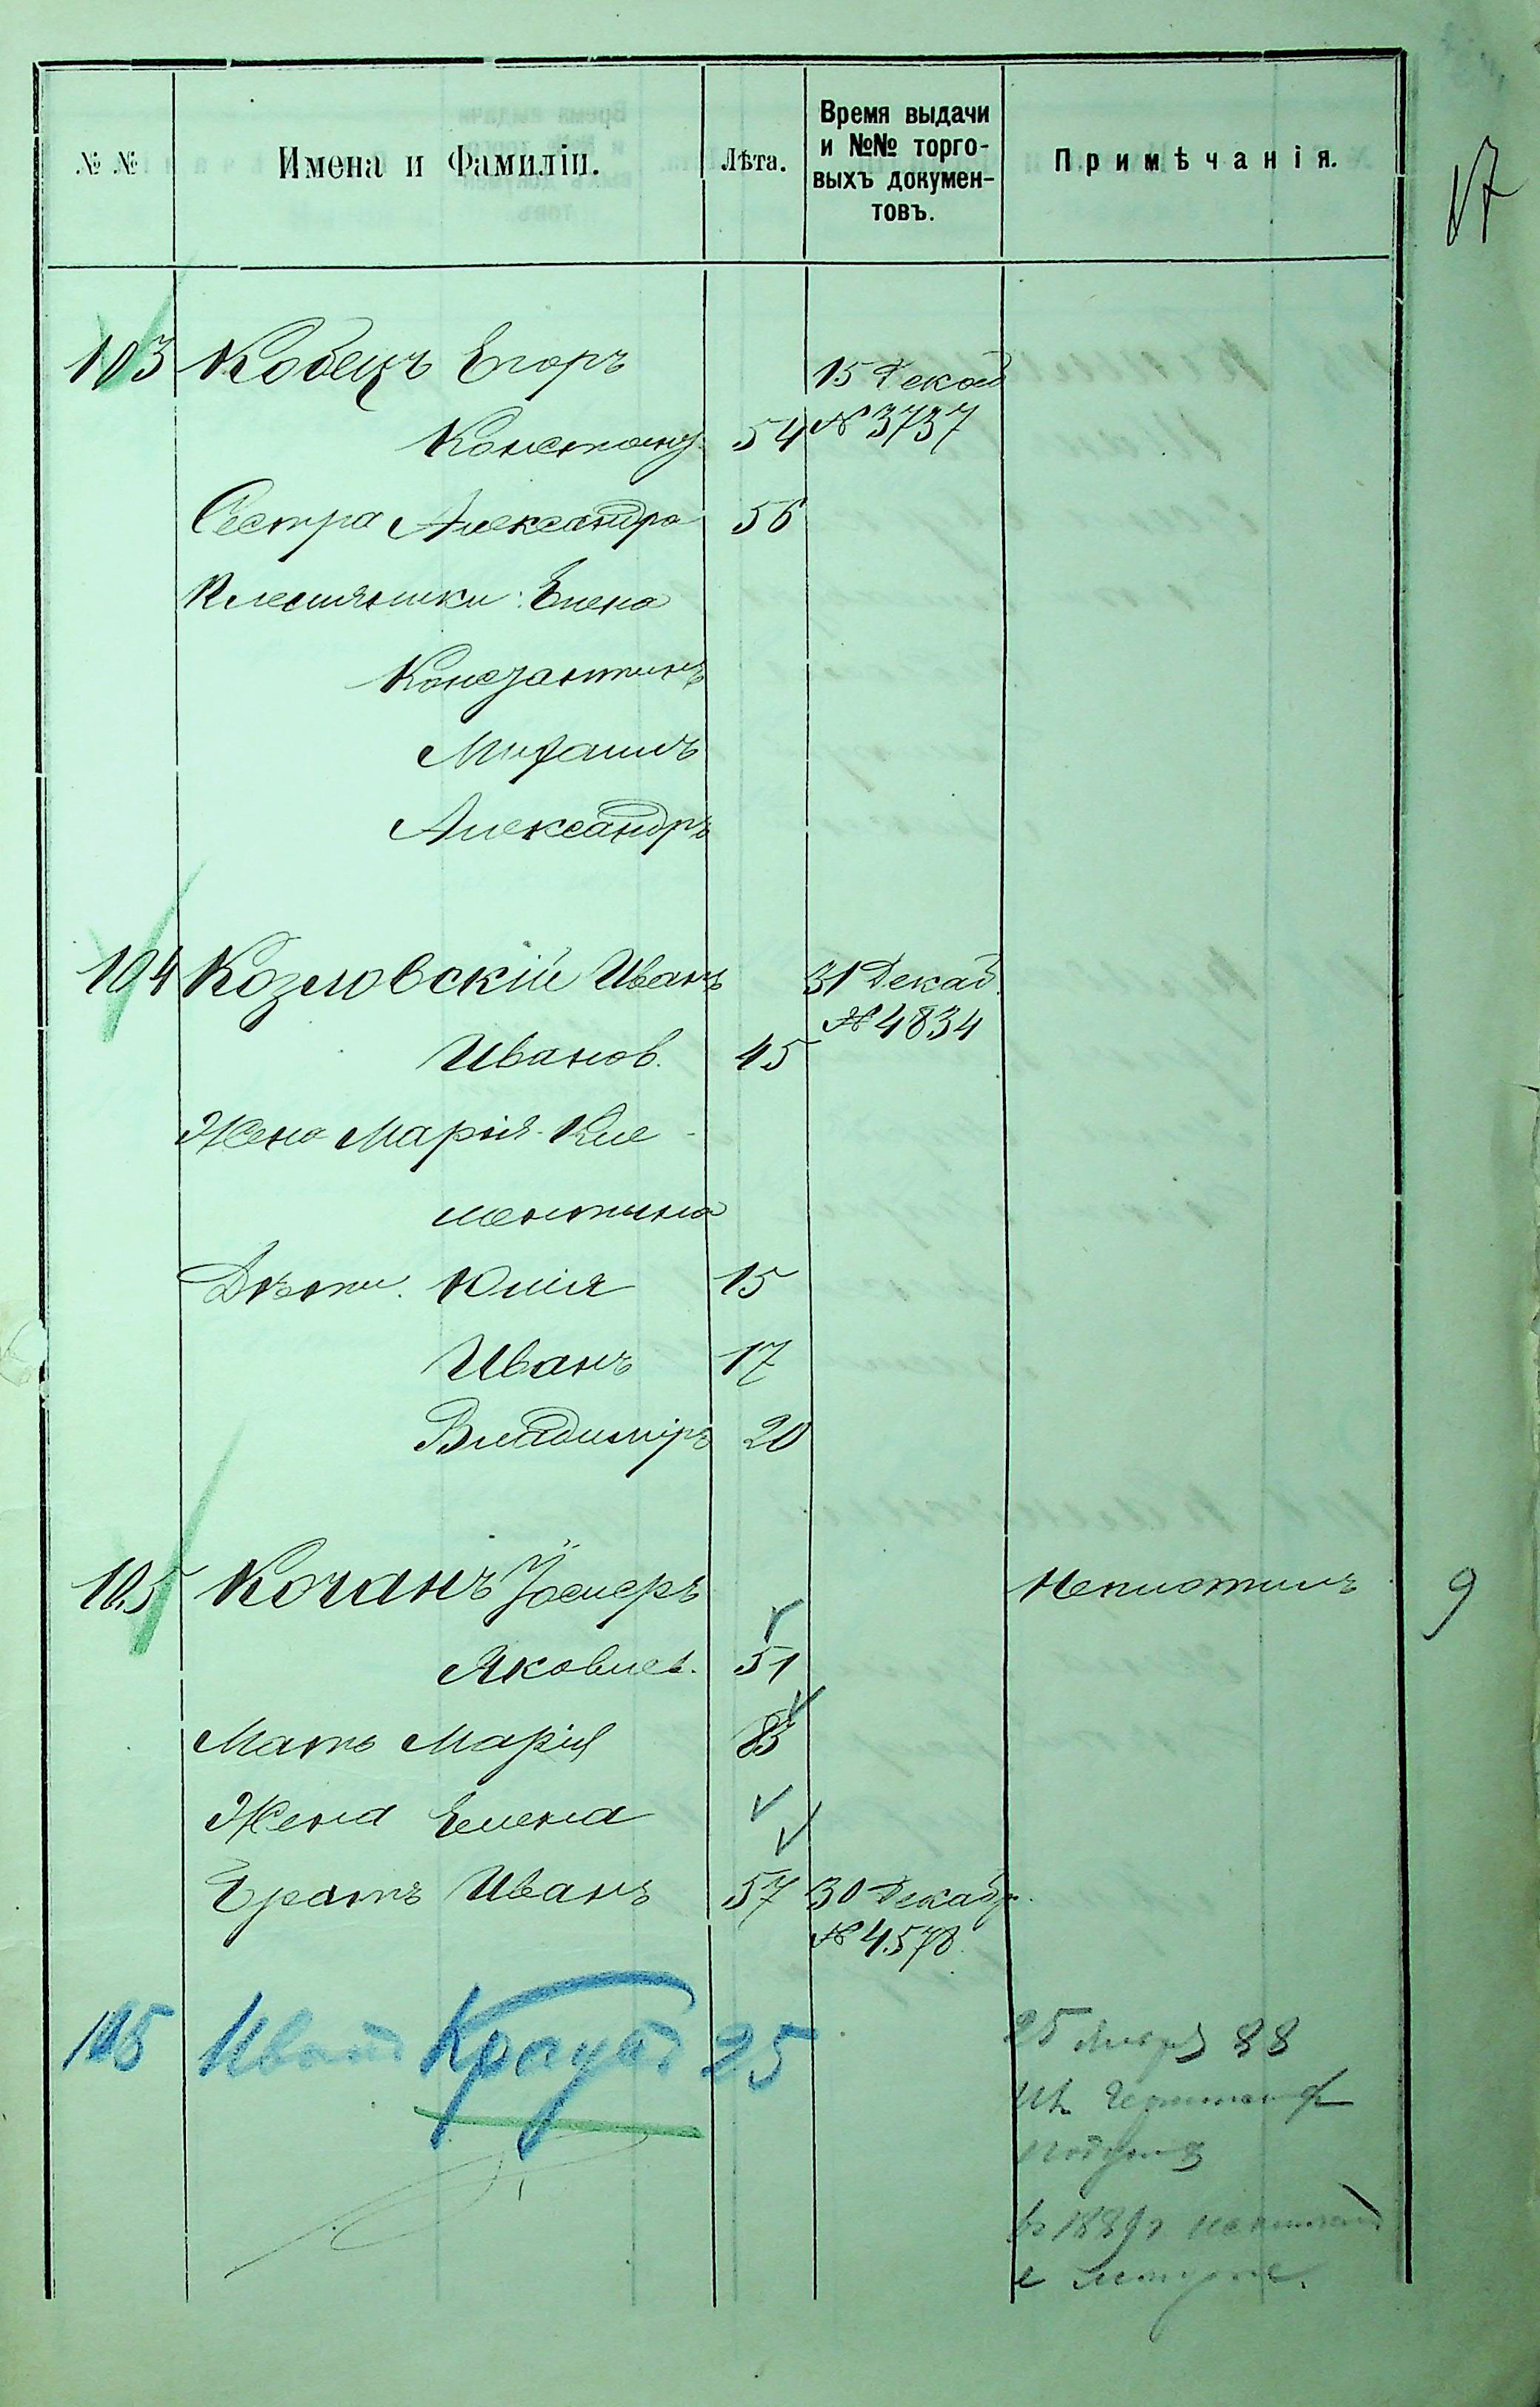 № №
Имена и Фамиліи.
Лѣта.
Время выдачи
и №№ торго-
выхъ докумен-
товъ.
Примѣчанія.
17
103 Кобецъ Егоръ
15 Декаб
Констант. 54 № 3737
Сестра Александра 56
Племянники: Елена
Константинъ
Михаилъ
Александръ
104 Козловскій Иванъ 31 Декаб.
№ 4834
Иванов. 45
Жена Марія Кле-
ментина
Дѣти. Юлія 15
Иванъ 17
Владиміръ 20
105 Коганъ Неплотилъ 9
Яковлев. 51
Мать Марія 83
Жена Елена
Братъ Иванъ 57 30 Декабр.
№ 4578
105 Иван 25
25 88
в 1889 г.